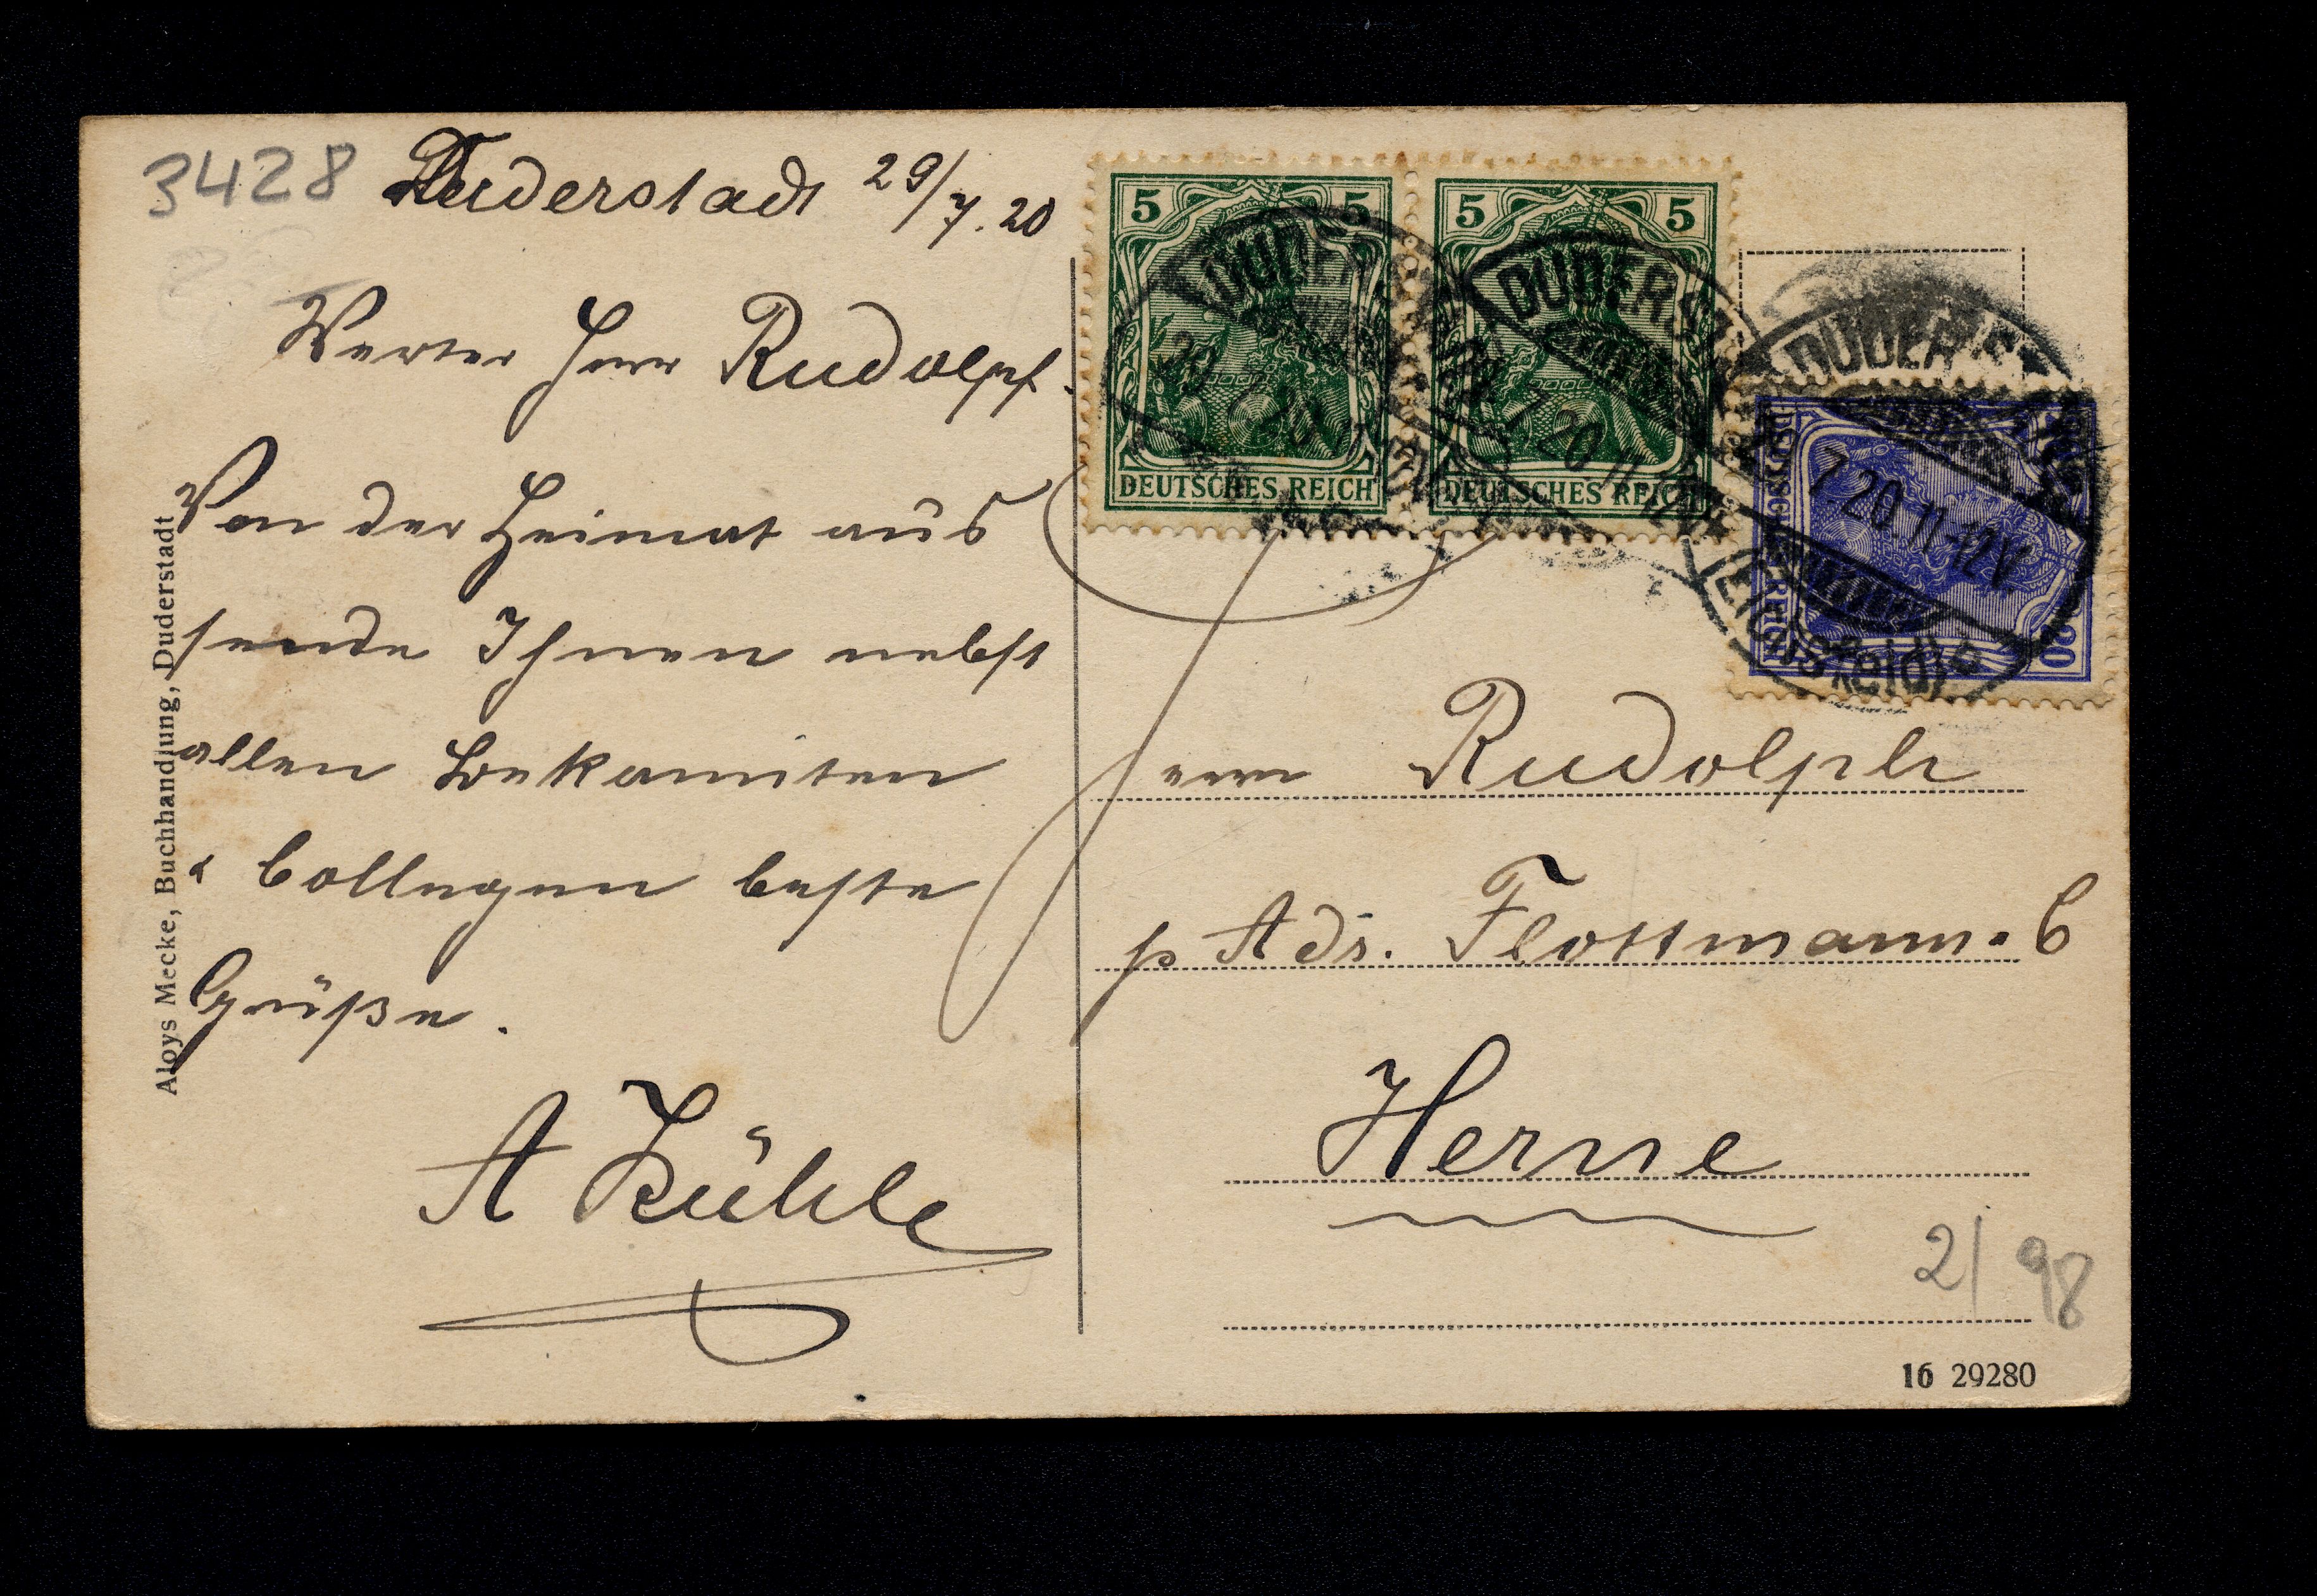 3428
Duderstadt 29/7. 20
Werter Herr Rudolph.
Von der Heimat aus
sende Ihnen nebst
allen Bekannten
& Collegen beste
Grüße.
A Kühle
Aloys Mecke, Buchhandlung, Duderstadt
5 5
DEUTSCHES REICH
5 5
DEUTSCHES REICH
20
DEUTSCHES REICH
DUDERSTADT
DUDERST
7 20 11-12V
DUDER
7 20 11-12V
(Eichsfeld)
Herrn Rudolph
p Adr. Flottmann & C
Herne
2/98
16 29280